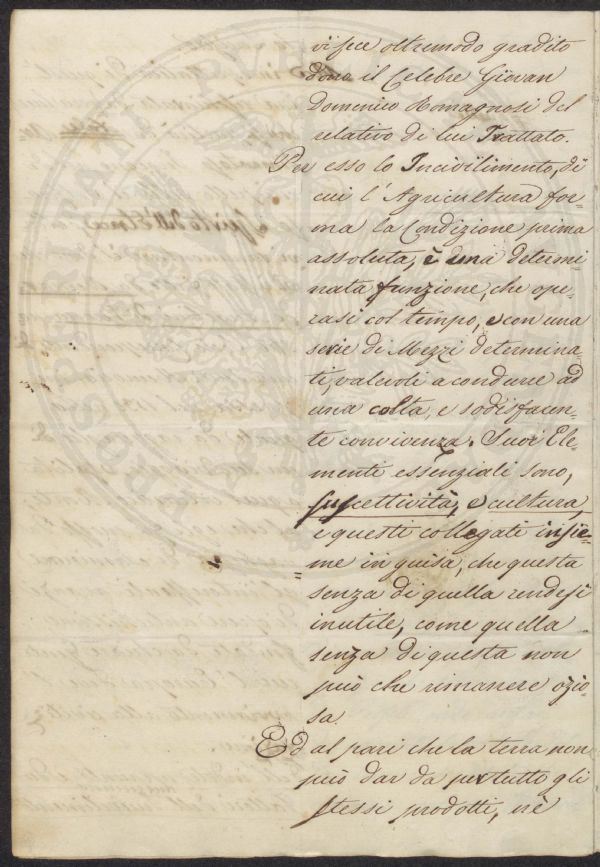 vi fece oltremodo gradito
dono il Celebre Giovan
Domenico Romagnosi del
relativo di lui Trattato.
Per esso lo Incivilimento, di
cui l'Agricultura for-
ma la Condizione prima
assoluta, è una determi
nata funzione, che ope-
rasi col tempo, e con una
serie di Mezzi determina-
ti, valevoli a condurre ad
una colta, e sodisfacen-
te convivenza. Suoi Ele-
menti essenziali sono,
suscettività, e cultura,
e questi collegati insie-
me in guisa, che questa
senza di quella rendesi
inutile, come quella
senza di questa non
può che rimanere ozio-
sa.
Ed al pari che la terra non
può dar da per tutto gli
stessi prodotti, nè